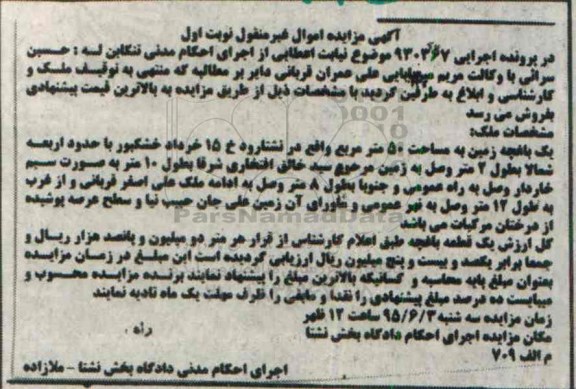 آگهی مزایده اموال غیرمنقول نوبت اول
در پرونده اجرایی ۹۳۰۳۶۷ موضوع نیابت اعطایی از اجرای احکام مدنی تنکابن له : حسین
سرائی با وکالت مریم میهایی علی عمران قربانی دایر بر مطالبه که منتهی به توقیف ملک و
کارشناسی و ابلاغ به طرفین گردید، با مشخصات ذیل از طریق مزایده به بالاترین قیمت پیشنهادی
بفروش می رسد
مشخصات ملک:
یک باغچه زمین به مساحت ۵۰ متر مربع واقع در نشتارود خ ۱۵ خرداد خشکبور با حدود اربعه
شمالا بطول ۲ متر وصل به زمین مرحوم سید خالق افتخاری شرقا بطول ۱۰ متر به صورت سیم
خاردار وصل به راه عمومی و جنوبا بطول ۸ متر وصل به ادامه ملک علی اصغر قربانی و از غرب
به طول ۱۲ متر وصل به نهر عمومی و ماورای آن زمین علی جان حبیب نیا و سطح عرصه پوشیده
از درختان مرکبات می باشد
کل ارزش یک قطعه باغچه طبق اعلام کارشناس از قرار هر متر دو میلیون و پانصد هزار ریال و
جمعا برابر یکصد و بیست و پنج میلیون ریال ارزیابی گردیده است این مبلغ در زمان مزایده
بعنوان مبلغ پایه محاسبه و کسانیکه بالاترین مبلغ را پیشنهاد نمایند برنده مزایده محسوب و
میبایست ده درصد مبلغ پیشنهادی را نقدا و مابقی را ظرف مهلت یک ماه تادیه نمایند
زمان مزایده سه شنبه ۹۵/۶/۳ ساعت ۱۲ ظهر
مکان مزایده اجرای احکام دادگاه بخش نشتا
م الف ۷۰۹
اجرای احکام مدنی دادگاه بخش نشتا - ملازاده
ParsNamadData